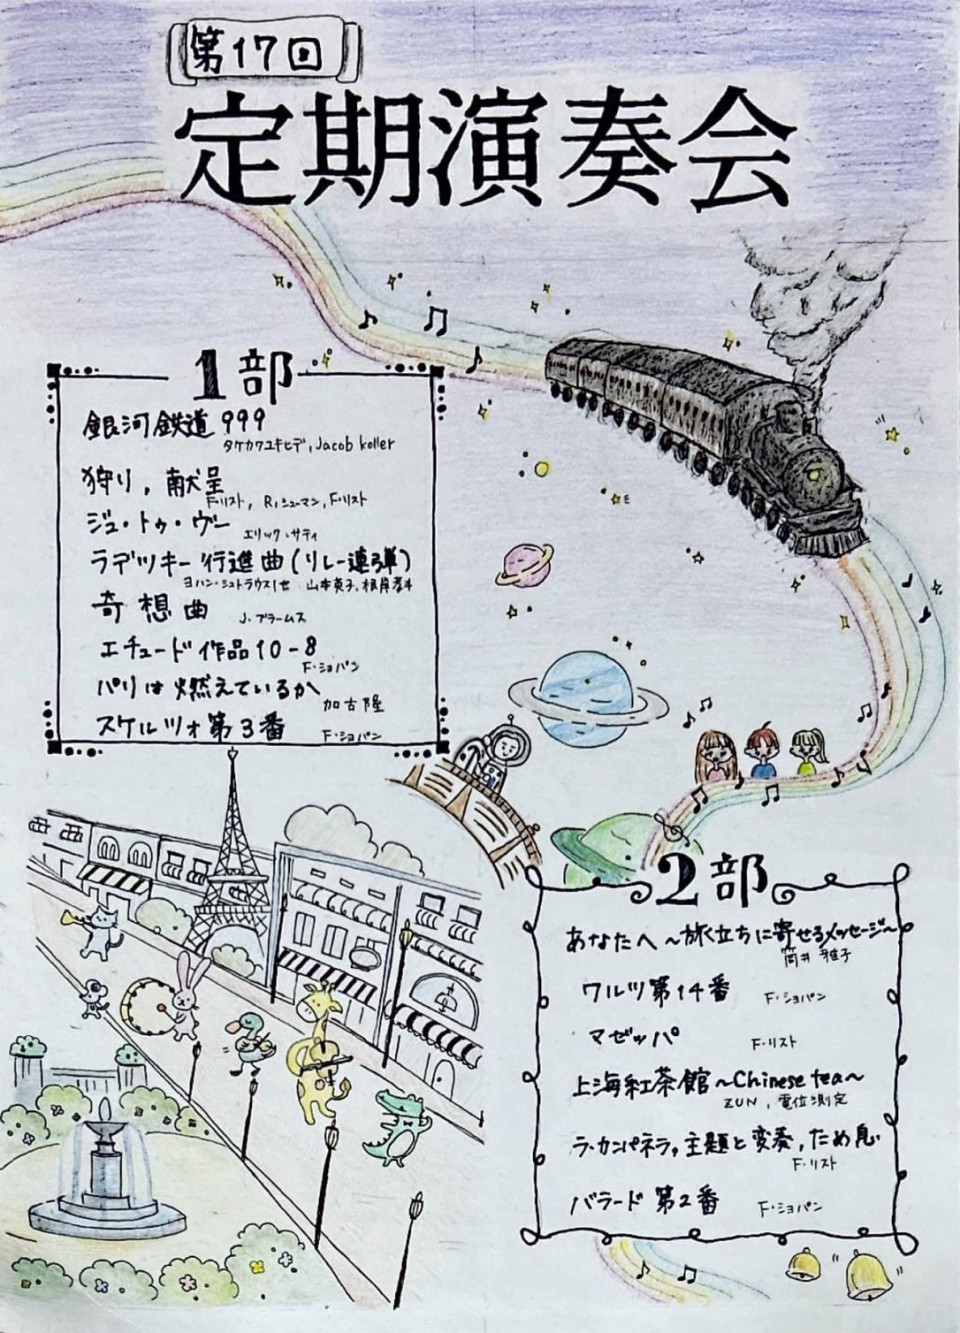 第17回
定期演奏会
1部
銀河鉄道 999
タケカワユキヒデ, Jacob koller
狩り, 献呈
F・リスト, R・シューマン, F・リスト
ジュ・トゥ・ヴー
エリック・サティ
ラデツキー行進曲(リレー連弾)
ヨハン・シュトラウス1世 山本英子, 根岸
奇想曲
J・ブラームス
エチュード作品10-8
F・ショパン
パリは燃えているか
加古隆
スケルツォ第3番
F・ショパン
2部
あなたへ ~旅立ちに寄せるメッセージ~
筒井 雅子
ワルツ第14番
F・ショパン
マゼッパ
F・リスト
上海紅茶館~Chinese tea~
ZUN, 電位測定
ラ・カンパネラ, 主題と変奏, ため息
F・リスト
バラード第2番
F・ショパン